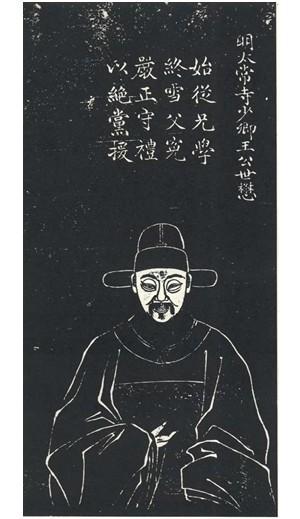 明太常寺少卿王公世懋
始從兄學
終雪父冤
嚴正守禮
以絕黨援